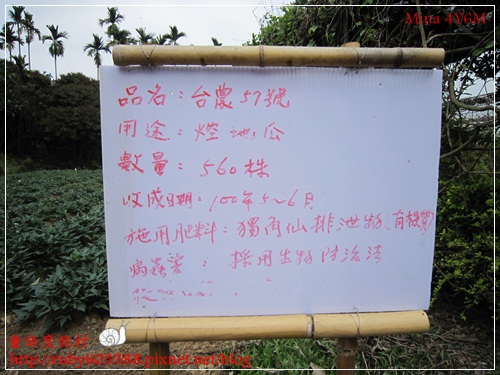 Mina 4Y6M
品名：台農57號
用途：焢地瓜
數量：560株
收成日期：100年5~6月
施用肥料：獨角仙排泄物(有機質)
病蟲害：採用生物防治法